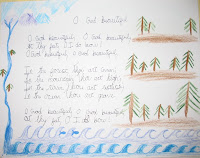 O God beautiful
O God beautiful, O God beautiful
At thy feet, O I do bow
O God beautiful, O God beautiful
In the forest thou art green
In the mountain thou art high
In the river thou art restless
In the ocean thou art grave
O God beautiful, O God beautiful
At thy feet, O I do bow